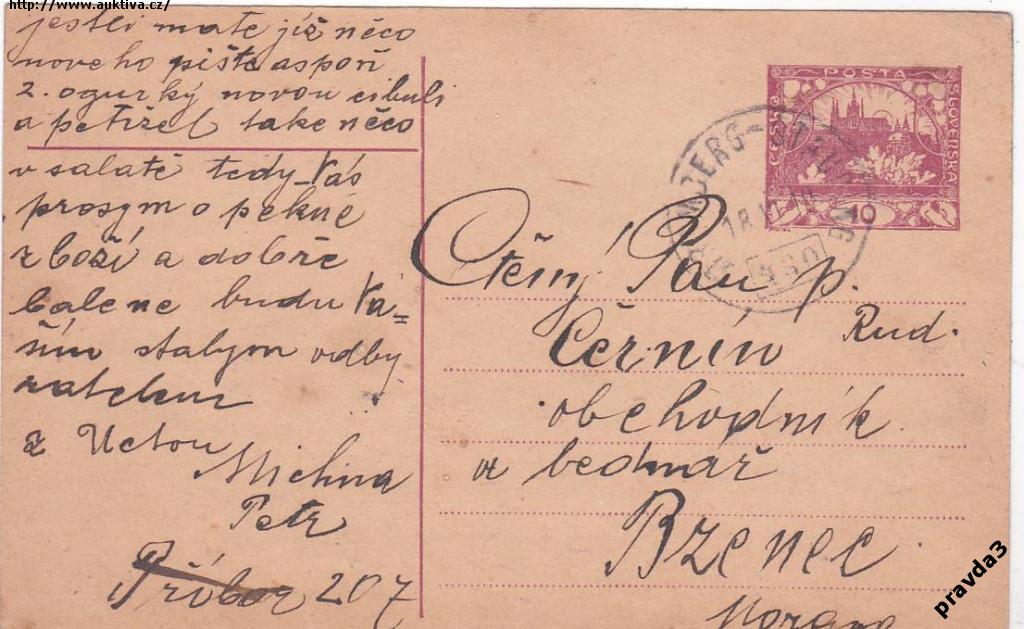 http://www.auktiva.cz/
jestli mate již něco
noveho pište aspoň
2. ogurky novou cibuli
a petržel take něco
v salatě tedy Vás
prosym o pekne
zboží a dobře
balene budu Vá=
šim stalym odby
ratelem
z Uctou
Michna
Petr
Příbor 207
POSTA
ČESKO
SLOVENSKÁ
10
BERG
18 VI
Ctěný Pan p.
Rud.
Černín
obchodník
a bednař
Bzenec
Morava
pravda3